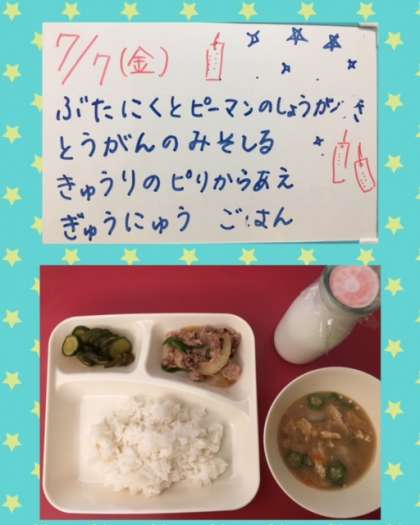 7/7(金)
ぶたにくとピーマンのしょうがやき
とうがんのみそしる
きゅうりのピリからあえ
ぎゅうにゅう ごはん